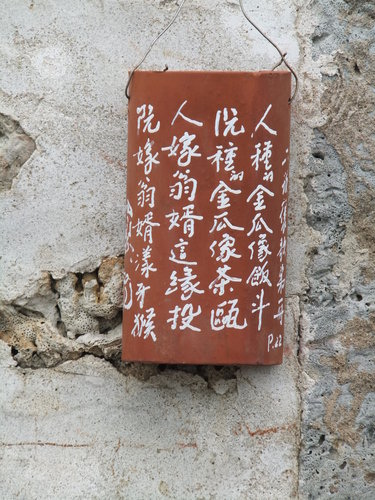 人種的金瓜像飯斗
阮種的金瓜像茶甌
人嫁翁婿這緣投
阮嫁翁婿漾牙猴
P.22